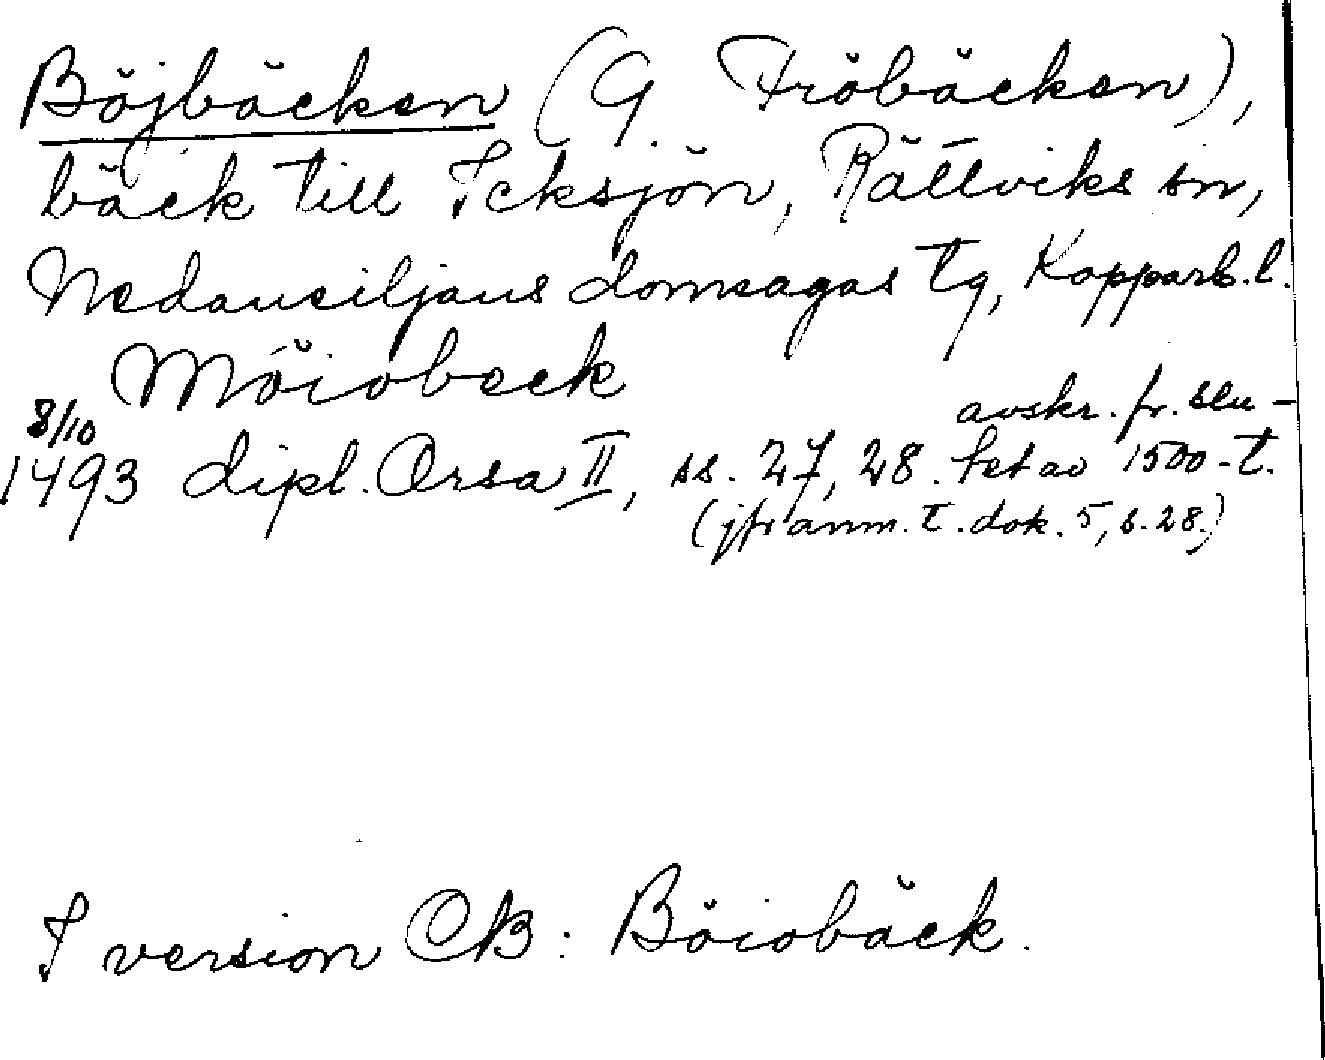 Böjbäcken (G. Fröbäcken),
bäck till Icksjön, Rättviks sn,
Nedansiljans domsagas tg, Kopparb. l.
Möiobeck
8/10 avskr. fr. slu-
1493 dipl. Orsa II, ss. 27, 28. tet av 1500-t.
(jfr anm. t. dok. 5, s. 28.)
I version CB: Böiobäck.